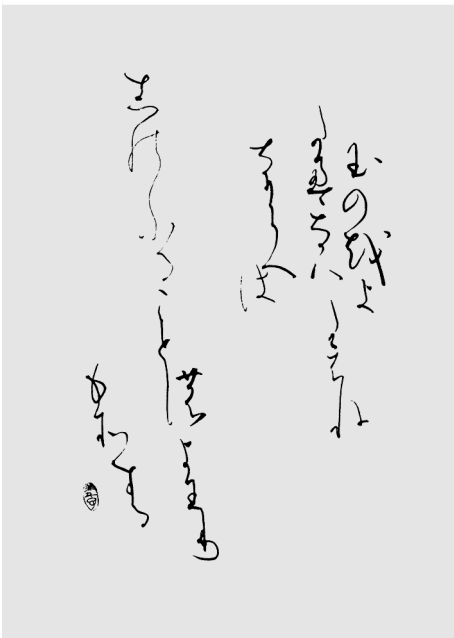 玉の越よ
たえなハたえね
なからへは
しのふること
のよわり
もそする